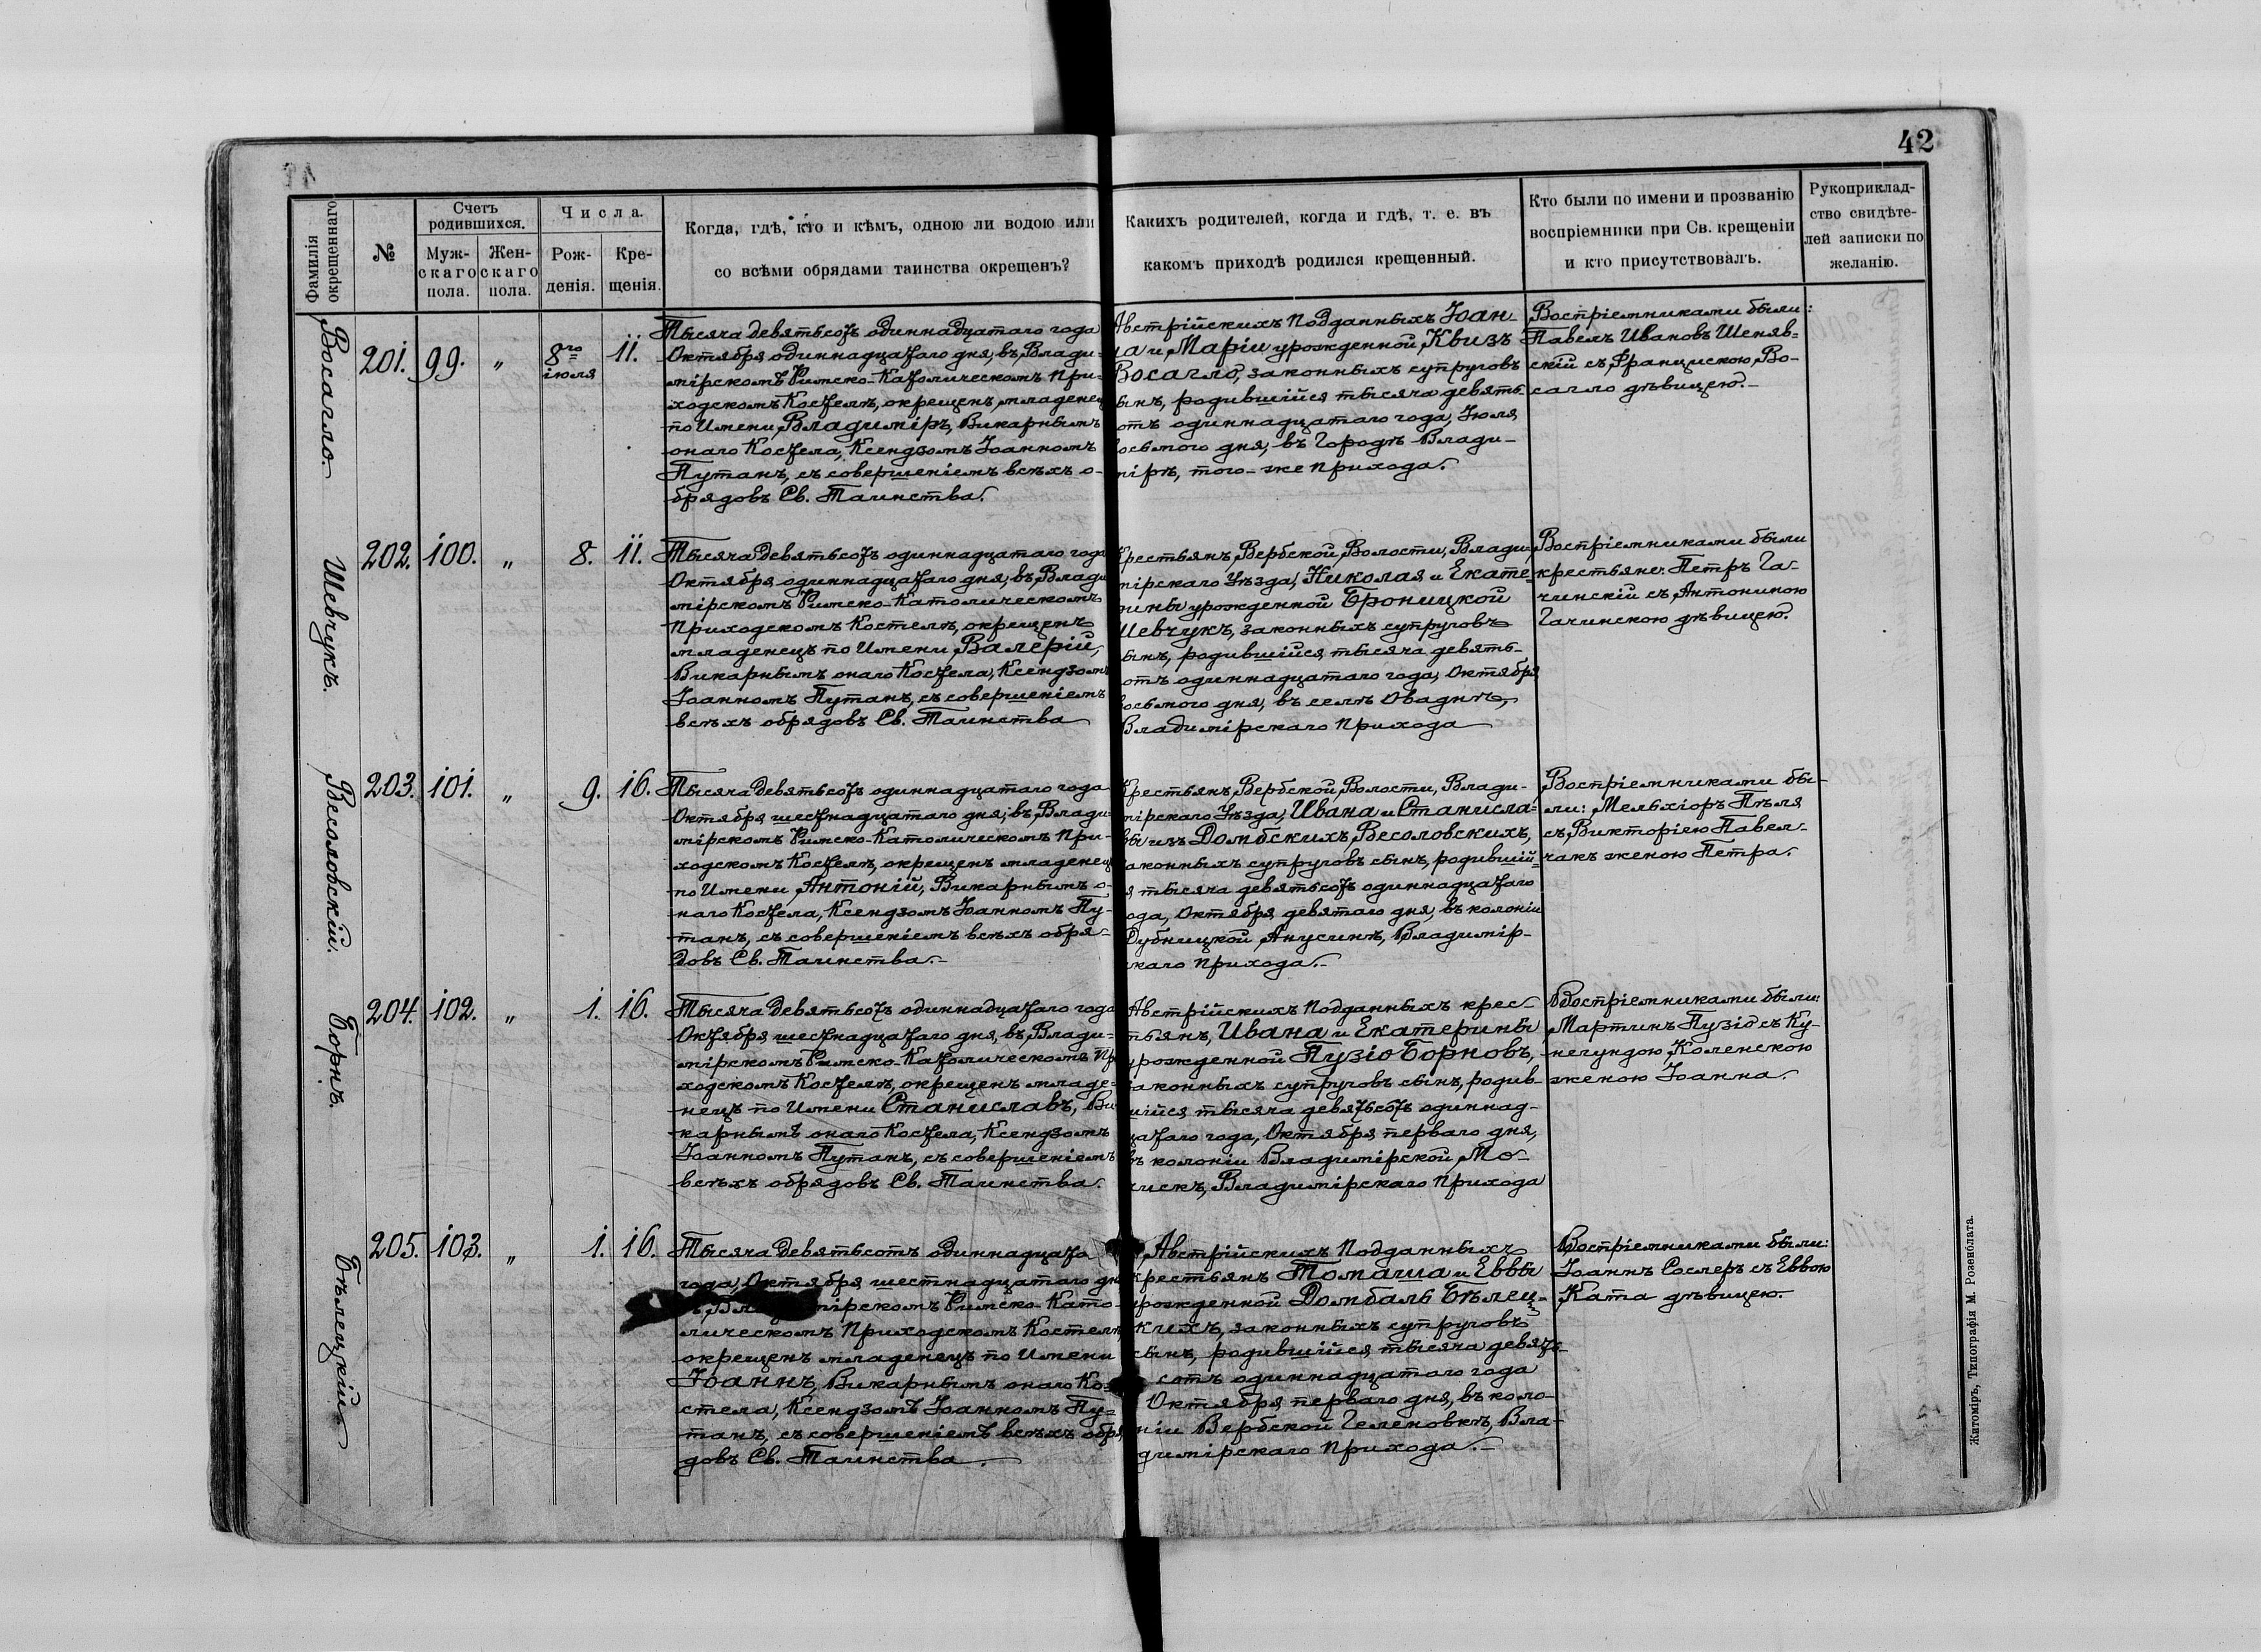 42
Фамилія окрещеннаго
№
Счетъ родившихся.
Муж-
скаго
пола.
Жен-
скаго
пола.
Числа.
Рож-
денія.
Кре-
щенія.
Когда, гдѣ, кто и кѣмъ, одною ли водою или
со всѣми обрядами таинства окрещенъ?
Какихъ родителей, когда и гдѣ, т. е. въ
какомъ приходѣ родился крещенный.
Кто были по имени и прозванію
воспріемники при Св. крещеніи
и кто присутствовалъ.
Рукоприклад-
ство свидѣте-
лей записки по
желанію.
Восагло.
201. 99. „ 8го іюля 11.
Тысяча девятьсотъ одиннадцатаго года
Октября одиннадцатаго дня, въ Влади-
мірскомъ Римско-Католическомъ При-
ходскомъ Костелѣ, окрещенъ младенец
по Имени Владиміръ, Викарнымъ
онаго Костела, Ксендзомъ Іоанномъ
Путанъ, съ совершеніемъ всѣхъ о-
брядовъ Св. Таинства.
Австрійскихъ Подданныхъ Іоан-
на и Маріи урожденной Квизъ
Восагло, законныхъ супруговъ
ынъ, родившійся тысяча девять-
отъ одиннадцатаго года, Іюля
осьмого дня, въ Городѣ Влади-
мірѣ, того-же Прихода.
Воспріемниками были:
Павелъ Ивановъ Шеняв-
скій съ Францискою Во-
сагло дѣвицею.-
Шевчукъ.
202. 100. „ 8. 11.
Тысяча девятьсотъ одиннадцатаго года
Октября одиннадцатаго дня, въ Влади
мірскомъ Римско-Католическомъ
Приходскомъ Костелѣ, окрещенъ
младенецъ по Имени Валерій,
Викарнымъ онаго Костела, Ксендзомъ
Іоанномъ Путанъ, съ совершеніемъ
всѣхъ обрядовъ Св. Таинства
Крестьянъ, Вербской Волости, Влади-
мірскаго Уѣзда, Николая и Екате-
рины урожденной Броницкой
Шевчукъ, законныхъ супруговъ
ынъ, родившійся тысяча девять-
отъ одиннадцатаго года, Октября
осьмого дня, въ селѣ Оваднѣ,
Владимірскаго Прихода
Воспріемниками были
крестьяне: Петръ Га-
чинскій съ Антониною
Гачинскою дѣвицею.
Весоловскій.
203. 101. „ 9. 16.
Тысяча девятьсотъ одиннадцатаго года
Октября шестнадцатаго дня, въ Влади-
мірскомъ Римско-Католическомъ При-
ходскомъ Костелѣ, окрещенъ младенец
по Имени Антоній, Викарнымъ о-
наго Костела, Ксендзомъ Іоанномъ Пу-
танъ, съ совершеніемъ всѣхъ обря-
довъ Св. Таинства.-
Крестьянъ, Вербской Волости, Влади-
мірскаго Уѣзда, Ивана и Станисла-
вы изъ Домбскихъ, Весоловскихъ,
аконныхъ супруговъ сынъ, родившій-
я тысяча девятьсотъ одиннадцатаго
ода, Октября девятаго дня, въ колоніи
Дубницкой Анусинъ, Владимір-
скаго Прихода.-
Воспріемниками бы-
ли: Мельхіоръ Пѣля
съ Викторіею Павел-
чакъ женою Петра.
Борнъ.
204. 102. „ 1. 16.
Тысяча девятьсотъ одиннадцатаго года
Октября шестнадцатаго дня, въ Влади-
мірскомъ Римско-Католическомъ Пр
ходскомъ Костелѣ, окрещенъ младе-
нецъ по Имени Станиславъ, Ви
карнымъ онаго Костела, Ксендзомъ
Іоанномъ Путанъ, съ совершеніемъ
всѣхъ обрядовъ Св. Таинства.
Австрійскихъ Подданныхъ крес-
тьянъ, Ивана и Екатерины
урожденной Пузіо Борновъ,
законныхъ супруговъ сынъ, родив-
шійся тысяча девятьсотъ одиннад-
цатаго года, Октября перваго дня,
въ колоніи Владимірской Мо-
Владимірскаго Прихода
Воспріемниками были:
Мартинъ Пузіо съ Ку-
негундою Коленскою
женою Іоанна.
Бѣлецкій
205. 103. „ 1. 16.
Тысяча девятьсотъ одиннадцата
года, Октября шестнадцатаго дн
мірскомъ Римско-Като-
лическомъ Приходскомъ Костелѣ
окрещенъ младенецъ по Имени
Іоаннъ, Викарнымъ онаго Ко-
стела, Ксендзомъ Іоанномъ Пу-
танъ, съ совершеніемъ всѣхъ обря
довъ Св. Таинства.
Австрійскихъ Подданныхъ
крестьянъ Томаша и Еввы
урожденной Домбаль Бѣлец-
кихъ, законныхъ супруговъ
сынъ, родившійся тысяча девять-
сотъ одиннадцатаго года
Октября перваго дня, въ коло-
ніи Вербской Геленовкѣ, Вла-
димірскаго Прихода.-
Воспріемниками были:
Іоаннъ Сослеръ съ Еввою
Ката дѣвицею.
Житоміръ, Типографія М. Розенблата.